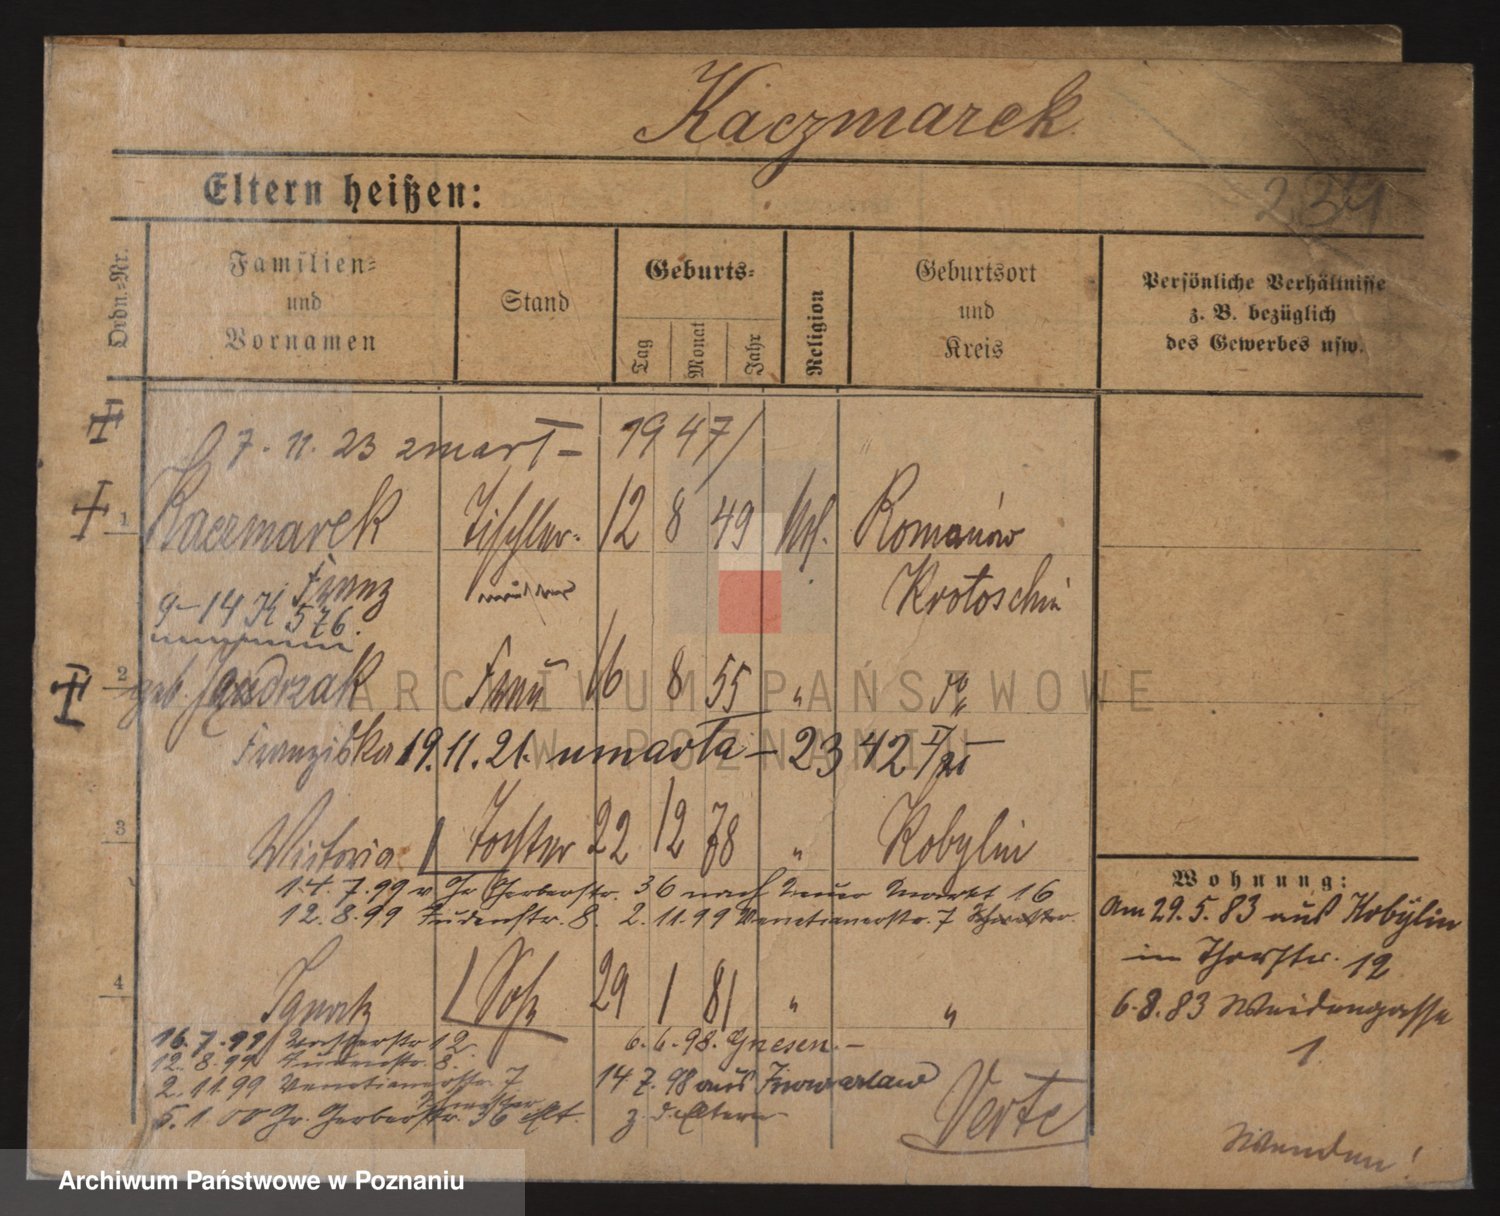 Kaczmarek
Eltern heißen:
234
Ordn.-Nr.
Familien-
und
Vornamen
Stand
Geburts-
Tag
Monat
Jahr
Religion
Geburtsort
und
Kreis
Persönliche Verhältnisse
z. B. bezüglich
des Gewerbes usw.
7. 11. 23 zmarł – 1947/
1 Kaczmarek Tischler 12 8 49 kath. Romanów
Franz Krotoschin
9–14 K 576.
2 geb. Jendrzak Frau 16 8 55 " do
Franziska 19. 11. 21. umarła – 2342
3 Victoria Tochter 22 12 78 " Kobylin
14. 7. 99 v. Gr. Gerberstr. 36 nach Neuer Markt 16
12. 8. 99 Judenstr. 8. 2. 11. 99 Venetianerstr. 7
4 Ignatz Sohn 29 1 81 " "
16. 7. 99 12.
6. 6. 98. Gnesen. –
12. 8. 99 Judenstr. 8.
2. 11. 99 Venetianerstr. 7
14 7. 98 aus Inowrazlaw
5. 1. 00 Gr. Gerberstr. 36 Elt.
z. d. Eltern –
Verte
Wohnung:
Am 29. 5. 83 aus Kobylin
in Thorstr. 12
6. 8. 83 Weidengasse
1.
Wenden!
ARCHIWUM PAŃSTWOWE
W POZNANIU
Archiwum Państwowe w Poznaniu